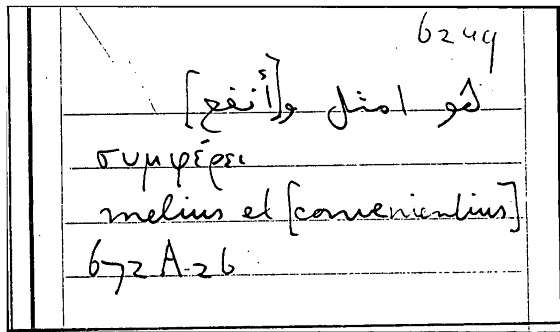 6249
هو امثل و[أنفع]
συμφέρει
melius et [convenientius]
672 A 26